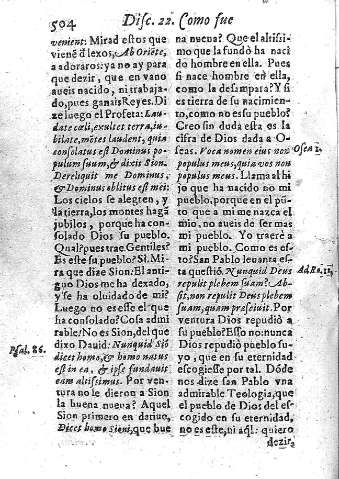 504 Disc. 22. Como fue
venient: Mirad estos que
vienē d̄ lexos, Ab Oriēte,
a adoraros: ya no ay para
que dezir, que en vano
aueis nacido, ni trabaja-
do, pues ganais Reyes. Di
ze luego el Profeta: Lau-
date cœli, exultet terra, iu-
bilate, mōtes laudent, quia
consolatus est Dominus po-
pulum suum, & dixit Sion.
Dereliquit me Dominus,
& Dominus oblitus est mei:
Los cielos se alegren, y
la tierra, los montes hagā
jubilos, porque ha con-
solado Dios su pueblo.
Qual? pues trae Gentiles?
Es este su pueblo? Sí. Mi-
ra que dize Sion: El anti-
guo Dios me ha dexado,
y se ha oluidado de mi?
Luego no es esse el que
ha consolado? Cosa admi
rable! No es Sion, del que
dixo Dauid: Nunquid Siō
dicet homo, & homo natus
est in ea, & ipse fundauit
eam altissimus. Por ven-
tura no le dieron a Sion
la buena nueua? Aquel
Sion primero en datiuo,
Dicet homo Sioni, que bue
Psal. 86.
na nueua? Que el altissi-
mo que la fundò ha naci
do hombre en ella. Pues
si nace hombre en ella,
como la desampara? Y si
es tierra de su nacimien-
to, como no es su pueblo?
Creo sin duda esta es la
cifra de Dios dada a O-
seas. Voca nomen eius non
populus meus, quia vos non
populus meus. Llama al hi
jo que ha nacido no mi
pueblo, porque en el pū-
to que a mi me nazca el
mio, no aueis de ser mas
mi pueblo. Yo traerè a
mi pueblo. Como es es-
to? San Pablo leuanta es-
ta questiō. Nunquid Deus
repulit plebem suam? Ab-
sit, non repulit Deus plebem
suam, quam præsciuit. Por
ventura Dios repudiò a
su pueblo? Esso no: nunca
Dios repudiò pueblo su-
yo, que en su eternidad
escogiesse por tal. Dōde
nos dize san Pablo vna
admirable Teologia, que
el pueblo de Dios del es-
cogido en su eternidad,
no es este, ni aq̄l: quiero
dezir,
Osea 1.
Ad Ro. 11.